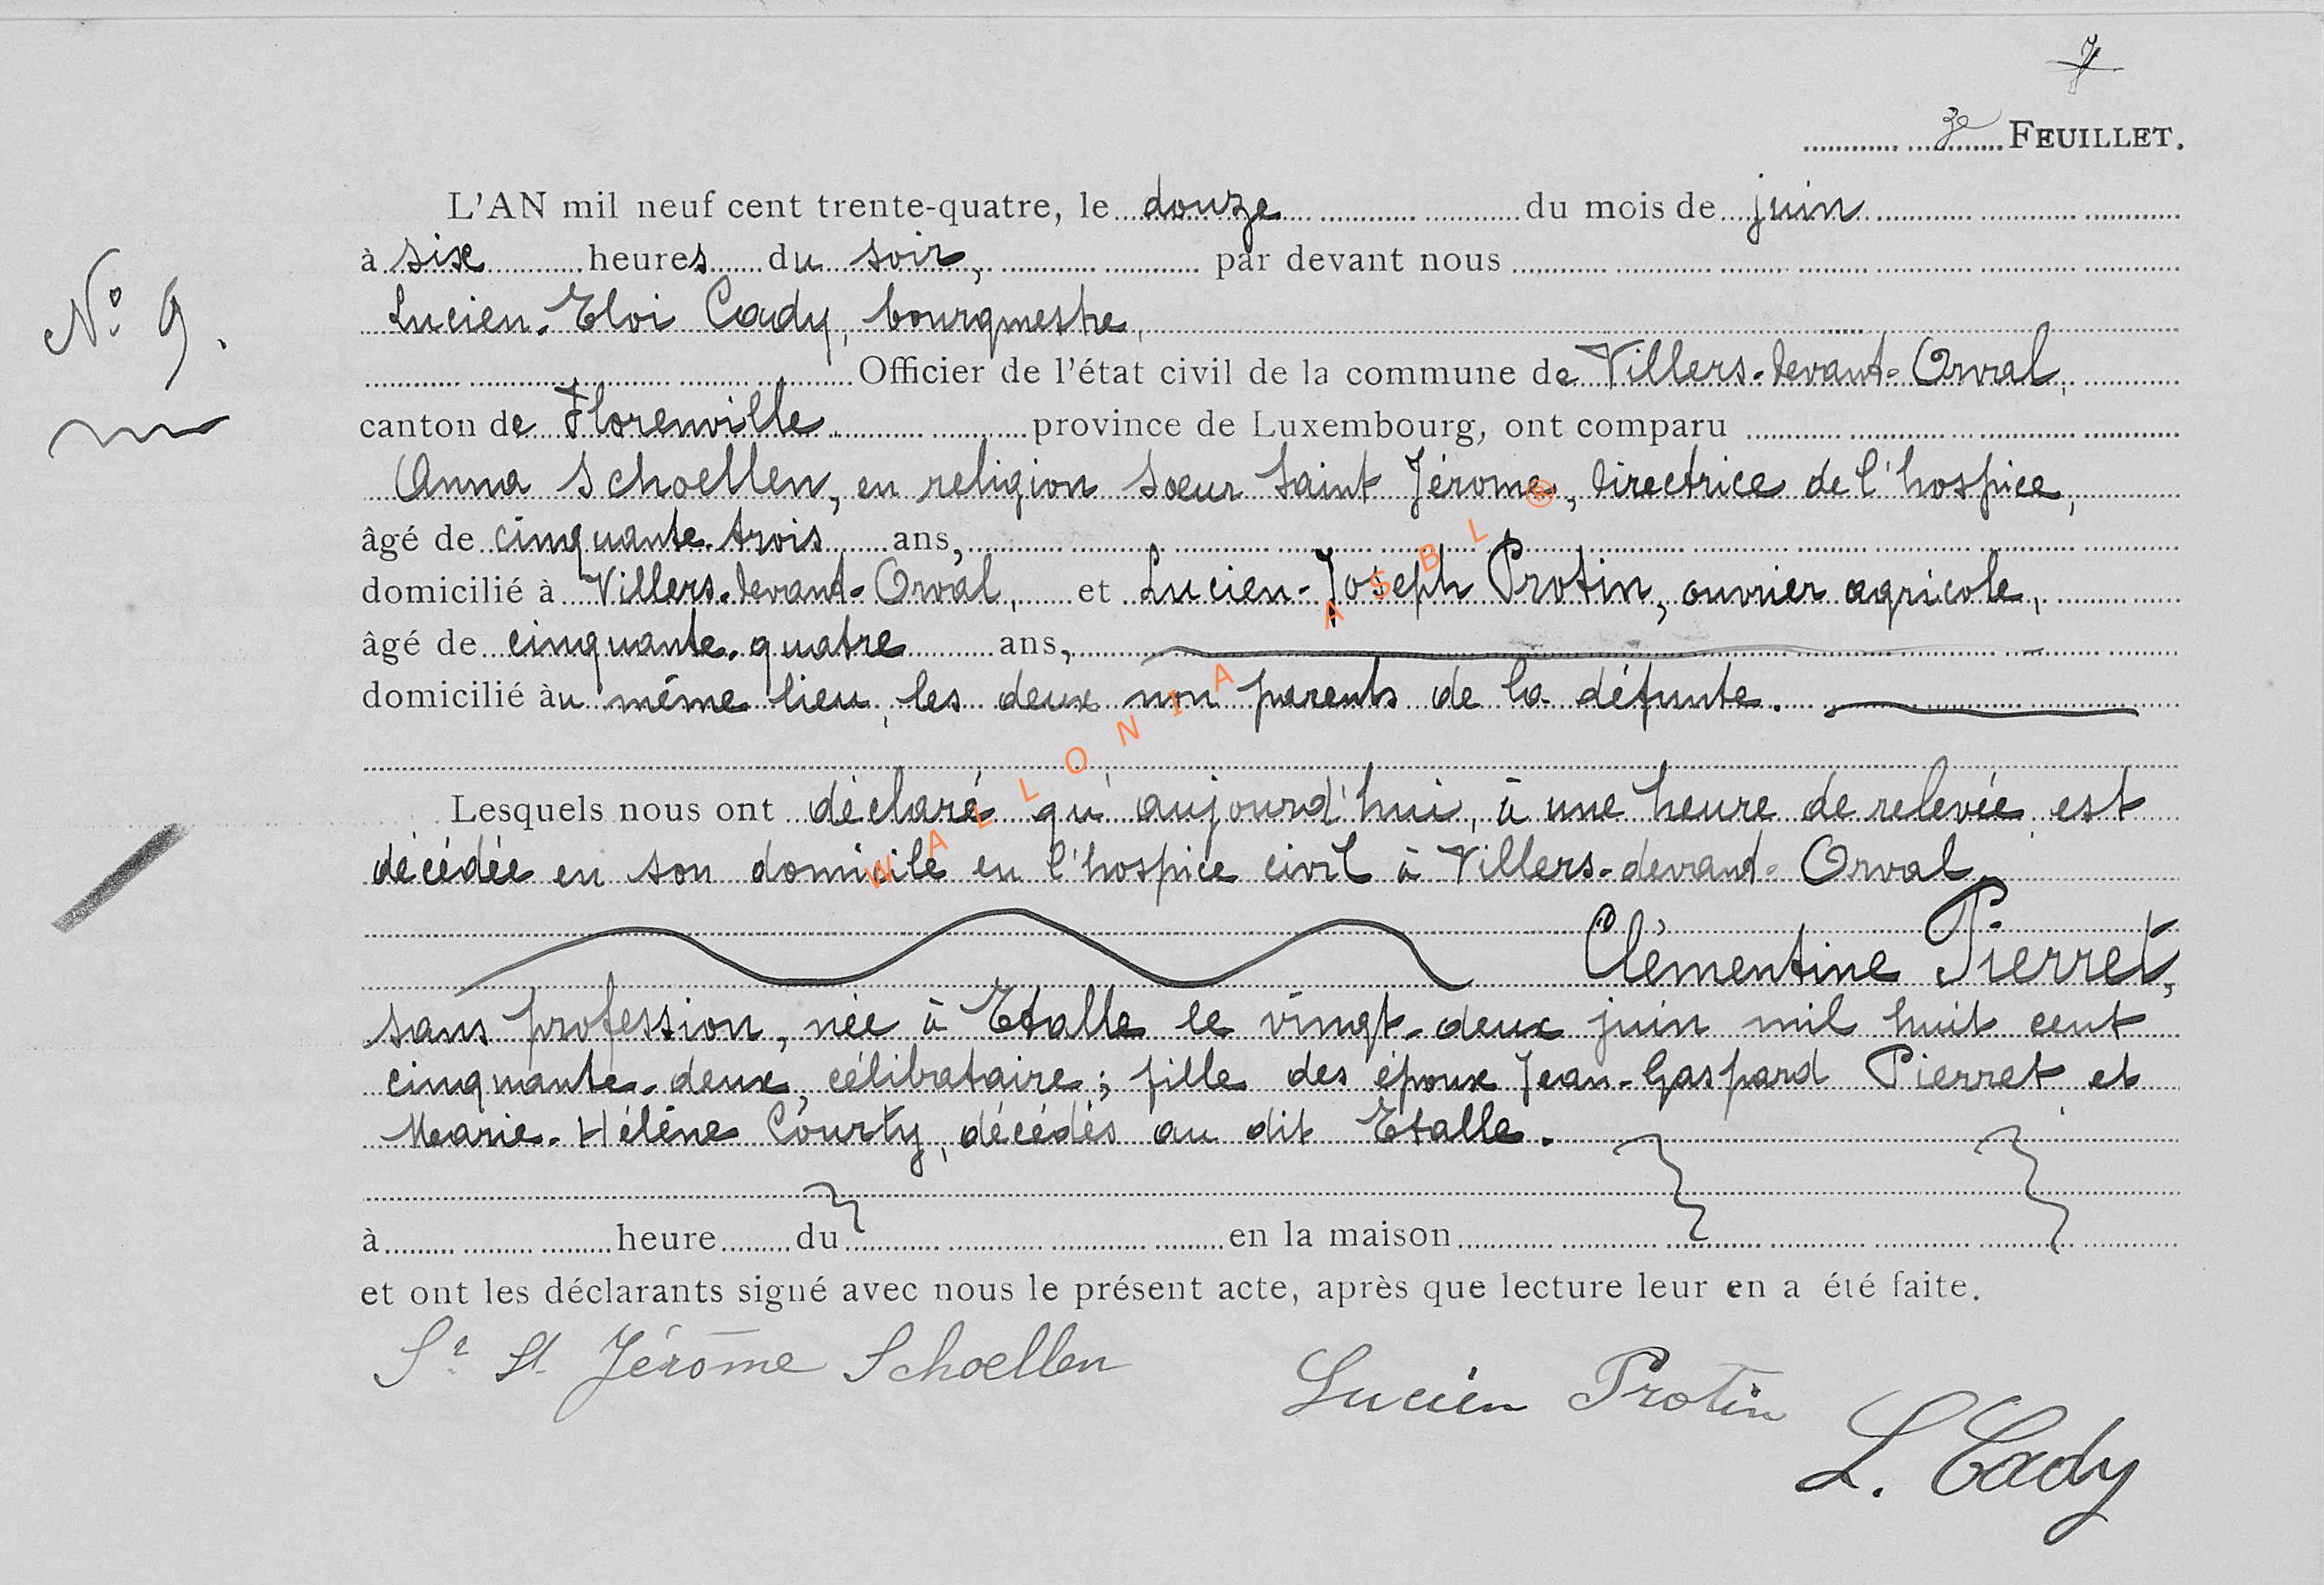 7
3e FEUILLET.
L'AN mil neuf cent trente-quatre, le douze du mois de juin
à six heures du soir, par devant nous
N° 9.
Lucien-Eloi Cady, bourgmestre,
Officier de l'état civil de la commune de Villers-devant-Orval,
canton de Florenville province de Luxembourg, ont comparu
Anna Schoellen, en religion soeur Saint Jérome, directrice de l'hospice,
âgé de cinquante-trois ans,
domicilié à Villers-devant-Orval, et Lucien-Joseph Protin, ouvrier agricole,
âgé de cinquante-quatre ans,
domicilié àu même lieu, les deux non parents de la défunte.
Lesquels nous ont déclaré qu'aujourd'hui, à une heure de relevée est
décédée en son domicile en l'hospice civil à Villers-devant-Orval
Clémentine Pierret,
sans profession, née à Etalle le vingt-deux juin mil huit cent
cinquante-deux, célibataire; fille des époux Jean-Gaspard Pierret et
Marie-Hélène Courty, décédés au dit Etalle.
à heure du en la maison
et ont les déclarants signé avec nous le présent acte, après que lecture leur en a été faite.
Sr St Jérôme Schoellen
Lucien Protin
L. Cady
WALLONIA ASBL ®